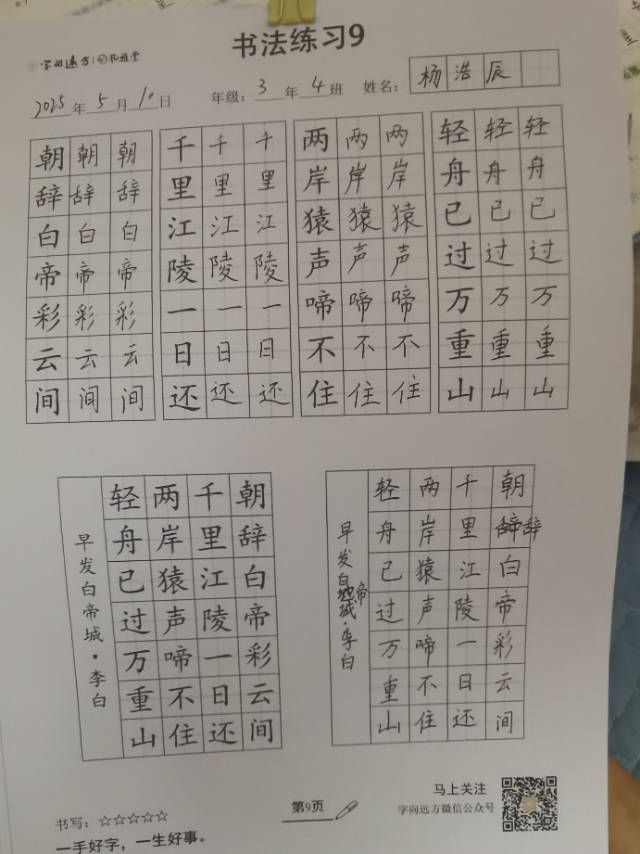 书法练习9
字向远方
2025年5月10日 年级:3年4班 姓名:杨浩辰
朝朝朝 千千千 两两两 轻轻轻
辞辞辞 里里里 岸岸岸 舟舟舟
白白白 江江江 猿猿猿 已已已
帝帝帝 陵陵陵 声声声 过过过
彩彩彩 一一一 啼啼啼 万万万
云云云 日日日 不不不 重重重
间间间 还还还 住住住 山山山
早发白帝城·李白
轻两千朝
舟岸里辞
已猿江白
过声陵帝
万啼一彩
重不日云
山住还间
早发白帝城·李白
轻两千朝
舟岸里辞
已猿江白
过声陵帝
万啼一彩
重不日云
山住还间
书写:☆☆☆☆☆
一手好字,一生好事。
第9页
马上关注
字向远方微信公众号